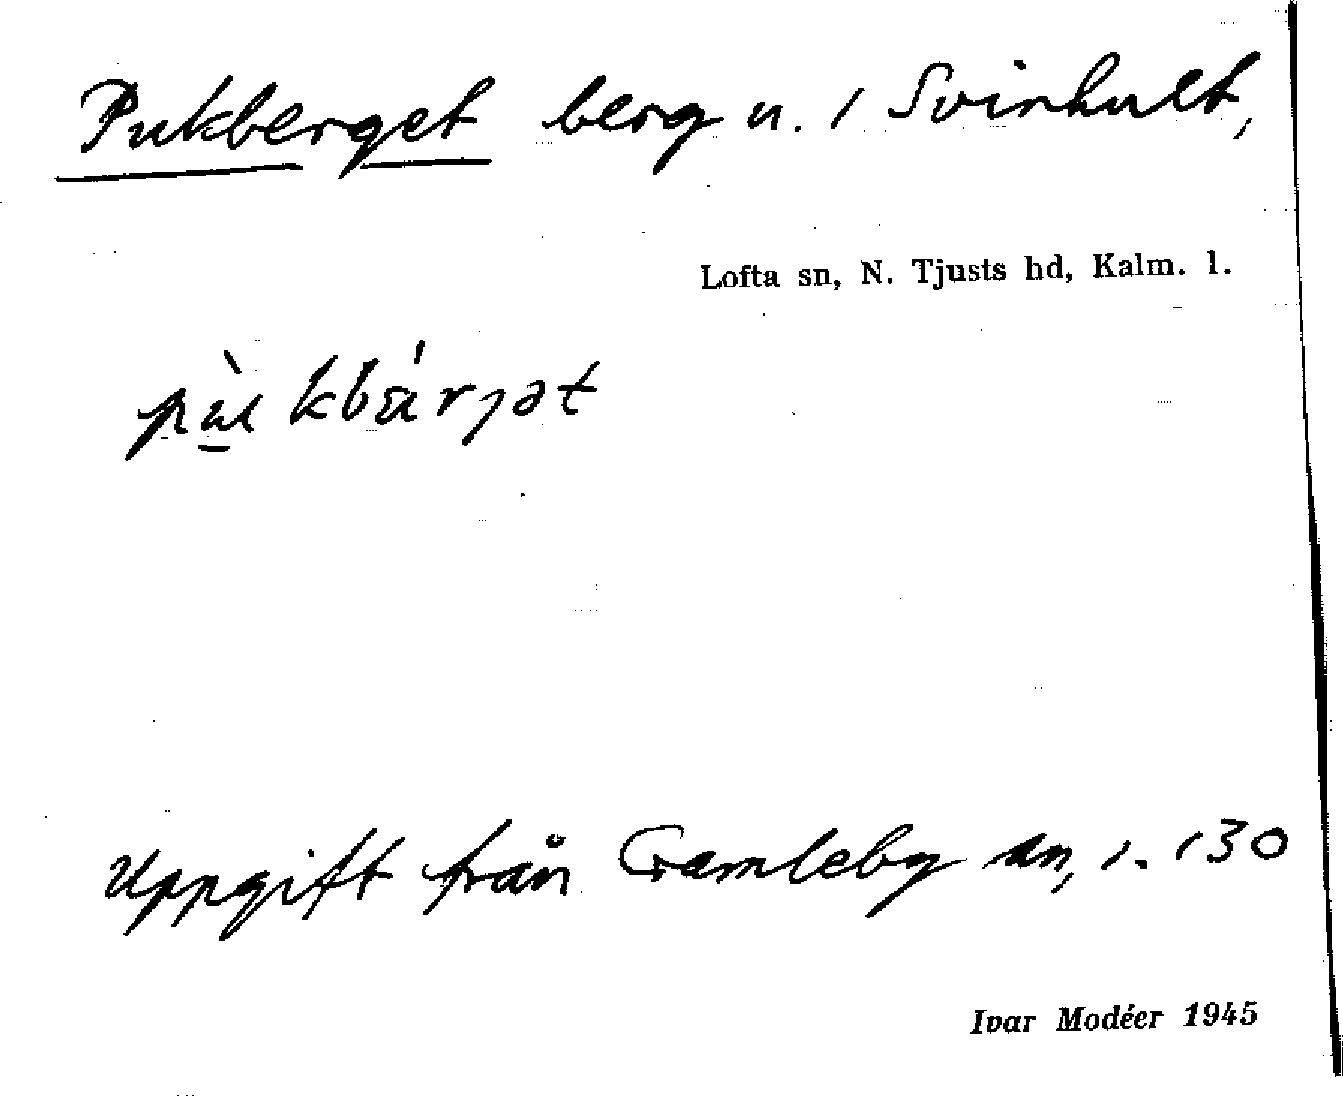 Pukberget berg n. i Svinhult,
Lofta sn, N. Tjusts hd, Kalm. l.
pù̠kbä́rjət
Uppgift från Gamleby sn, s. 130
Ivar Modéer 1945